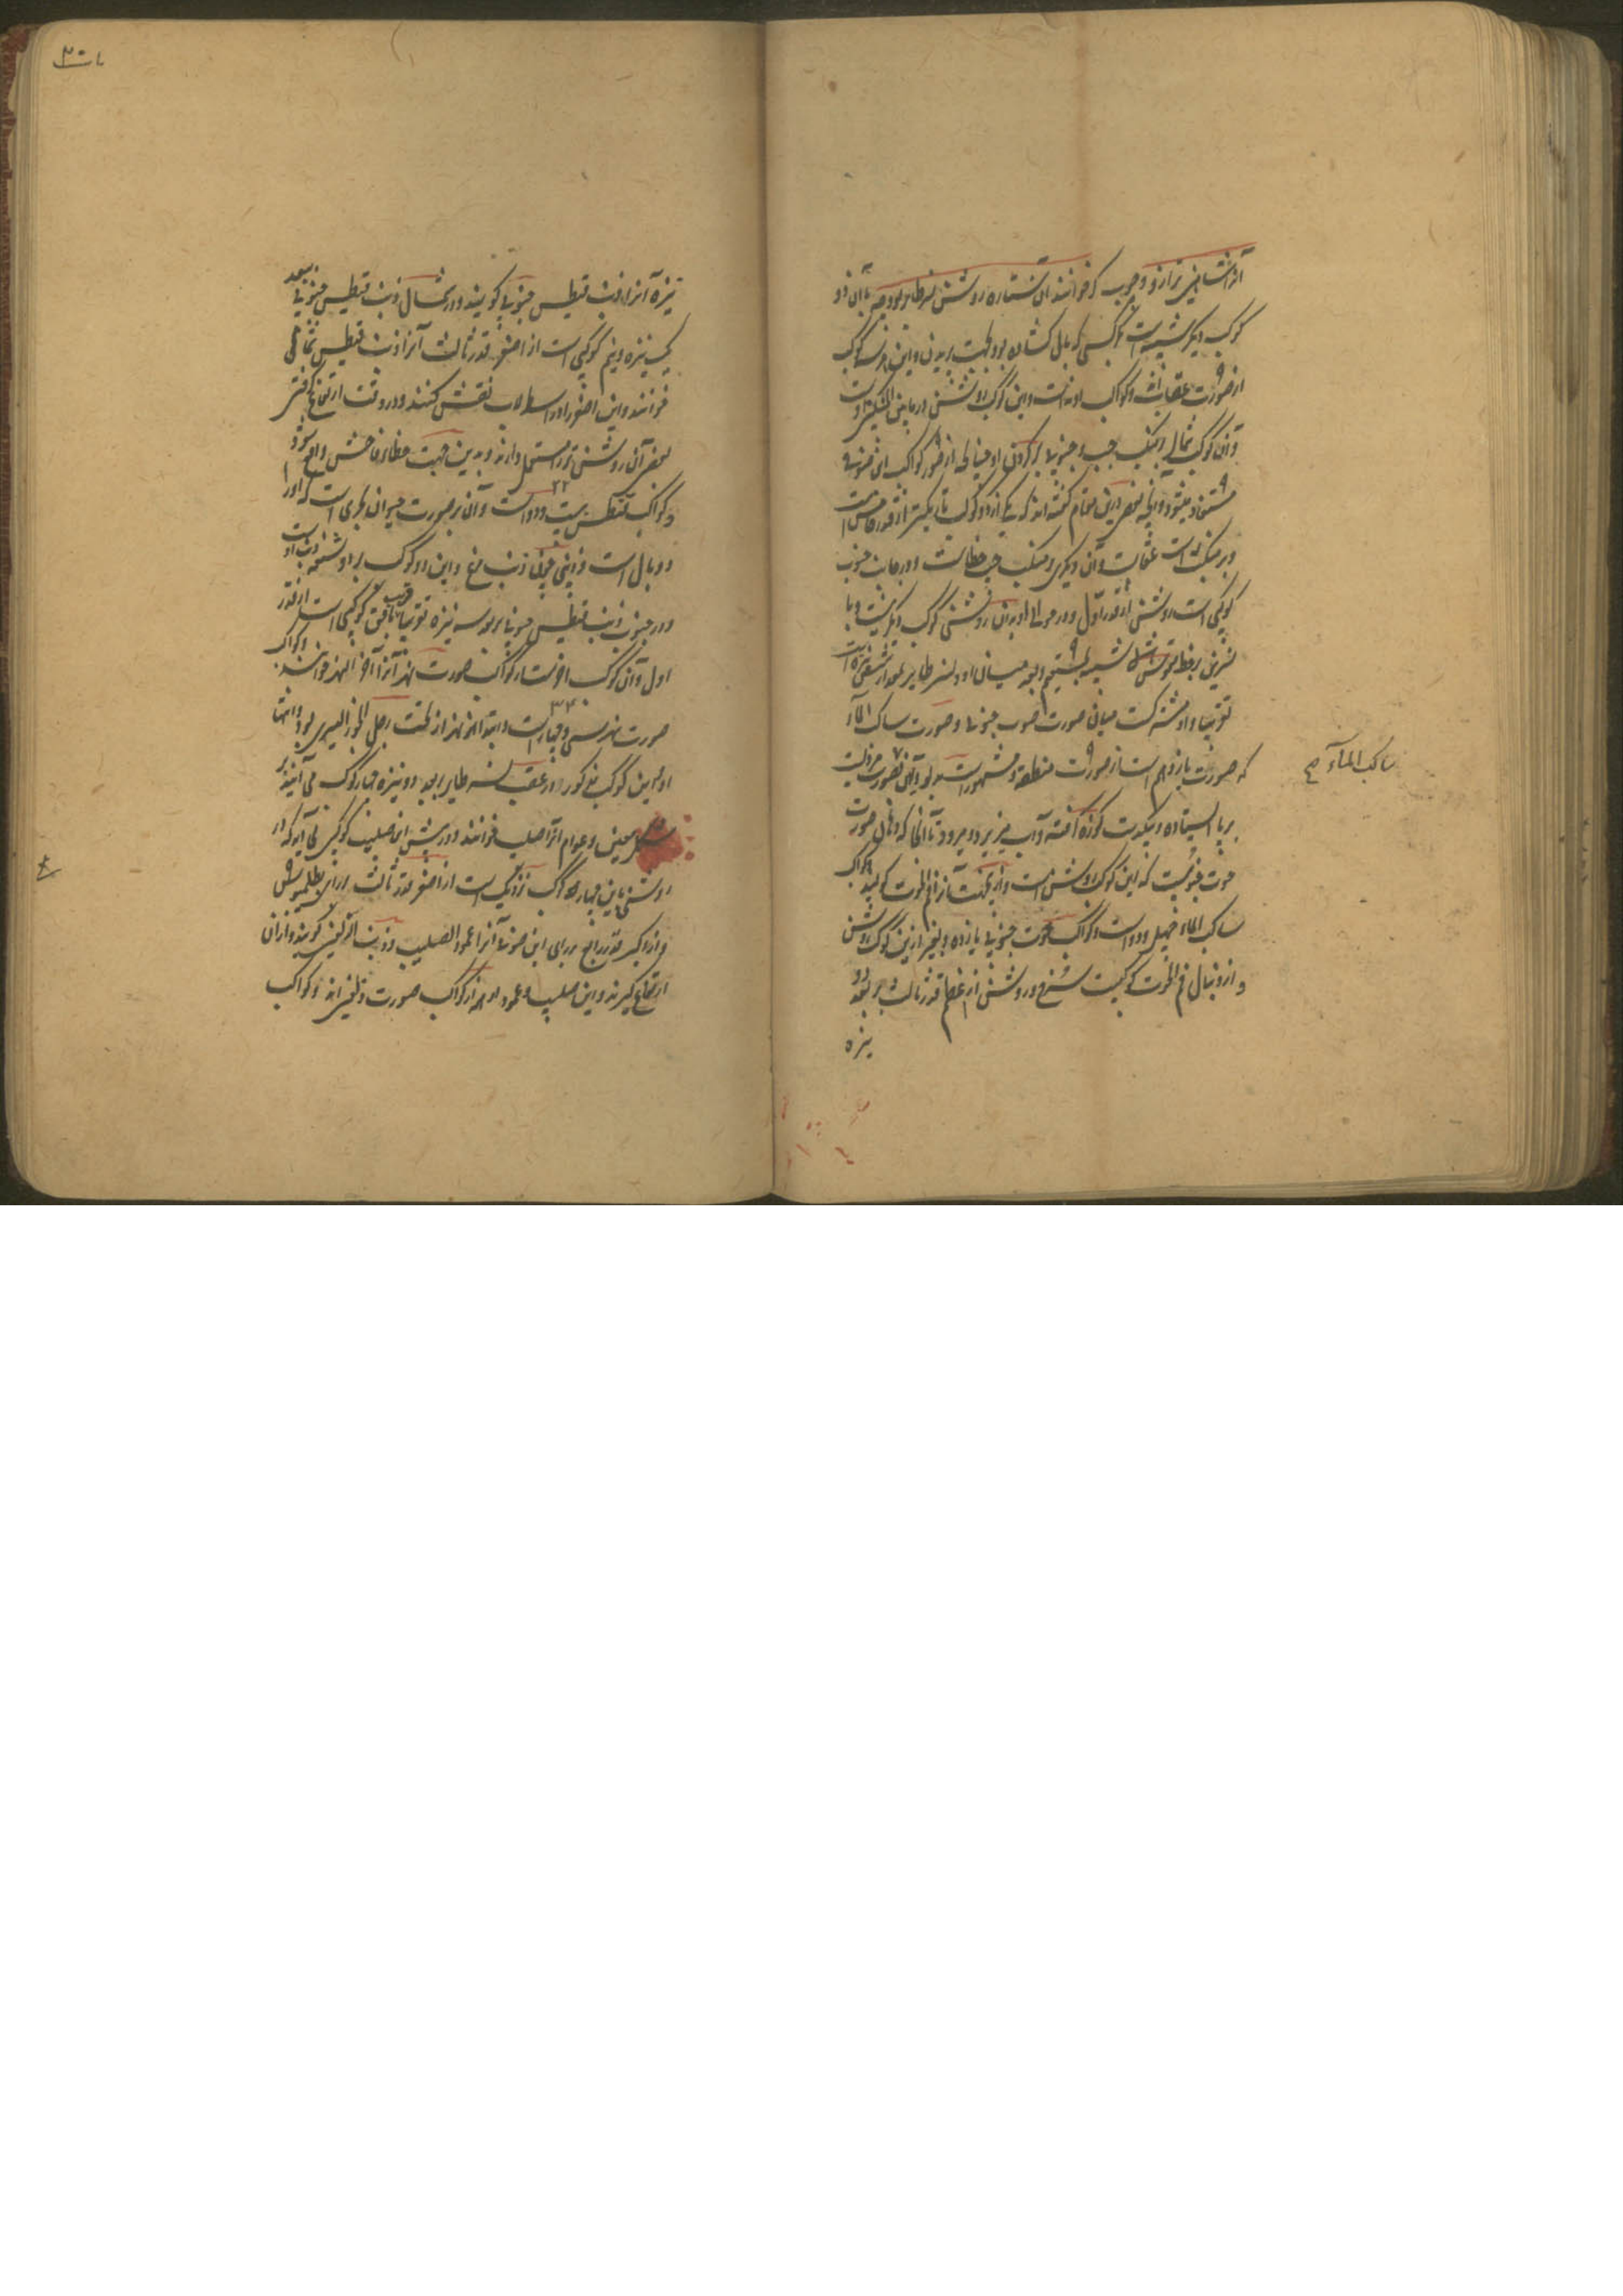 آنرا شاهین ترازو و چوب گز خوانند آن ستاره روشن نسر طایر بود چه با آن دو
کوکب دیگر شبیه است بکرکسی که بال گشاده بود بجهت پریدن و این هر سه کوکب
از صورت عقاب اند و کواکب او نه است و این کوکب روشن در مابین المنکبین اوست
و آن کوکب شمالی بر منکب چپ و جنوبی بر گردن او چنانچه از صور کواکب ابن صوفی
مستفاد میشود و آنچه بعضی درین مقام گفته اند که یکی از دو کوکب تاریکتر از قدر خامس است
و بر منکب راست عقاب و آن دیگری بر منکب چپ خطاست و در جانب جنوب
کوکبی است روشن از قدر اول و در حوالی او بدان روشنی کوکب دیگر نیست و با
نسرین بر خط قوسی شکل شبیه بمستقیم و بعد میان او و نسر طایر بعد از شش نیزه است
تقریبا و او مشترک است میان صورت حوت جنوبی و صورت ساکب الماء
که صورت یازدهم است از صورت منطقة و مشهور است بدلو و آن بصورت مردیست
بر پا ایستاده و بیکدست کوزه گرفته و آب میریزد و میرود تا آنجا که دهان صورت
حوت جنوبیست که این کوکب روشن است و از آنجهت آنرا فم الحوت گویند و کواکب
ساکب الماء چهل و دو است و کواکب حوت جنوبی یازده و بغیر ازین کوکب روشن
و از دنبال فم الحوت کوکبیست سرخ و روشن از اعظم قدر ثالث بر بعد دو
نیزه
ساکب الماء صح
نیزه آنرا ذنب قیطس جنوبی گویند و در شمال ذنب قیطس جنوبی ببعد
یک نیزه و نیم کوکبی است از اصغر قدر ثالث آنرا ذنب قیطس شمالی
خوانند و این اصغر را در اسطرلاب نقش کنند و در وقت ارتفاع گرفتن
بعضی آن روشن تر را مستعمل دارند و بدین جهت خطای فاحش واقع شود
و کواکب قیطس بیست و دو است و آن بر صورت حیوان بحری است که او را
۲۲
دو بال است و ذنبی چون ذنب مرغ و این دو کوکب بر دو شعبه ذنب اوست
و در جنوب ذنب قیطس جنوبی ببعد سه نیزه تقریبا قریب بافق کوکبی است از قدر
اول و آن کوکب از کواکب صورت نهر آنرا آخر النهر خوانند و کواکب
صورت نهر سی و چهار است و ابتدا نهر از تحت رجل الجوزا الیسری بود و انتها
۳۴
او باین کوکب مذکور و در عقب نسر طایر ببعد دو نیزه چهار کوکب می آیند بر
شکل معین و عوام آنرا صلیب خوانند و در پیش این صلیب کوکبی می آید که در
روشنی باین چهار کوکب نزدیک است از اصغر قدر ثالث برای بطلمیوس
و از اکبر قدر رابع برای ابن صوفی آنرا عمود الصلیب و ذنب الدلفین گویند و از آن
ارتفاع گیرند و این صلیب و عمود او همه از کواکب صورت دلفین اند و کواکب